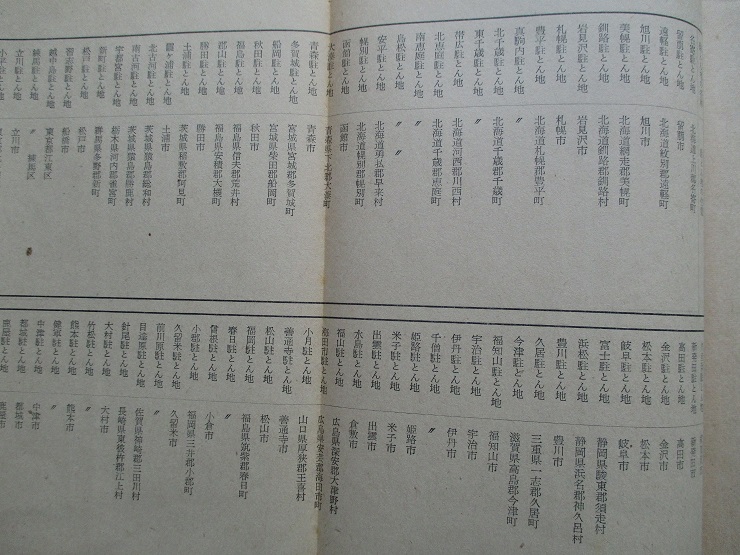 留萠駐とん地 留萠市
遠軽駐とん地 北海道紋別郡遠軽町
旭川駐とん地 旭川市
美幌駐とん地 北海道網走郡美幌町
釧路駐とん地 北海道釧路郡釧路村
岩見沢駐とん地 岩見沢市
札幌駐とん地 札幌市
豊平駐とん地 北海道札幌郡豊平町
真駒内駐とん地 〃
北千歳駐とん地 北海道千歳郡千歳町
東千歳駐とん地 〃
帯広駐とん地 北海道河西郡川西村
北恵庭駐とん地 北海道千歳郡恵庭町
南恵庭駐とん地 〃
島松駐とん地 〃
安平駐とん地 北海道勇払郡早来町
幌別駐とん地 北海道幌別郡幌別町
函館駐とん地 函館市
大湊駐とん地 青森県下北郡大湊町
青森駐とん地 青森市
多賀城駐とん地 宮城県宮城郡多賀城町
船岡駐とん地 宮城県柴田郡船岡町
秋田駐とん地 秋田市
福島駐とん地 福島県信夫郡荒井村
郡山駐とん地 福島県安積郡大槻町
勝田駐とん地 勝田市
土浦駐とん地 土浦市
霞ヶ浦駐とん地 茨城県稲敷郡阿見町
北古河駐とん地 茨城県猿島郡総和村
南古河駐とん地 茨城県猿島郡勝鹿村
宇都宮駐とん地 栃木県河内郡雀宮町
新町駐とん地 群馬県多野郡新町
松戸駐とん地 松戸市
習志野駐とん地 船橋市
越中島駐とん地 東京都江東区
練馬駐とん地 〃 練馬区
立川駐とん地 立川市
高田駐とん地 高田市
金沢駐とん地 金沢市
松本駐とん地 松本市
岐阜駐とん地 岐阜市
富士駐とん地 静岡県駿東郡須走村
浜松駐とん地 静岡県浜名郡神久呂村
豊川駐とん地 豊川市
久居駐とん地 三重県一志郡久居町
今津駐とん地 滋賀県高島郡今津町
福知山駐とん地 福知山市
宇治駐とん地 宇治市
伊丹駐とん地 伊丹市
千僧駐とん地 〃
姫路駐とん地 姫路市
米子駐とん地 米子市
出雲駐とん地 出雲市
水島駐とん地 倉敷市
福山駐とん地 広島県深安郡大津野村
海田市駐とん地 広島県安芸郡海田市町
小月駐とん地 山口県厚狭郡王喜村
善通寺駐とん地 善通寺市
松山駐とん地 松山市
福岡駐とん地 福島県筑紫郡春日町
春日駐とん地 〃
曽根駐とん地 小倉市
小郡駐とん地 福岡県三井郡小郡町
久留米駐とん地 久留米市
前川原駐とん地 〃
目達原駐とん地 佐賀県神埼郡三田川村
針尾駐とん地 長崎県東彼杵郡江上村
大村駐とん地 大村市
竹松駐とん地 〃
熊本駐とん地 熊本市
健軍駐とん地 〃
中津駐とん地 中津市
都城駐とん地 都城市